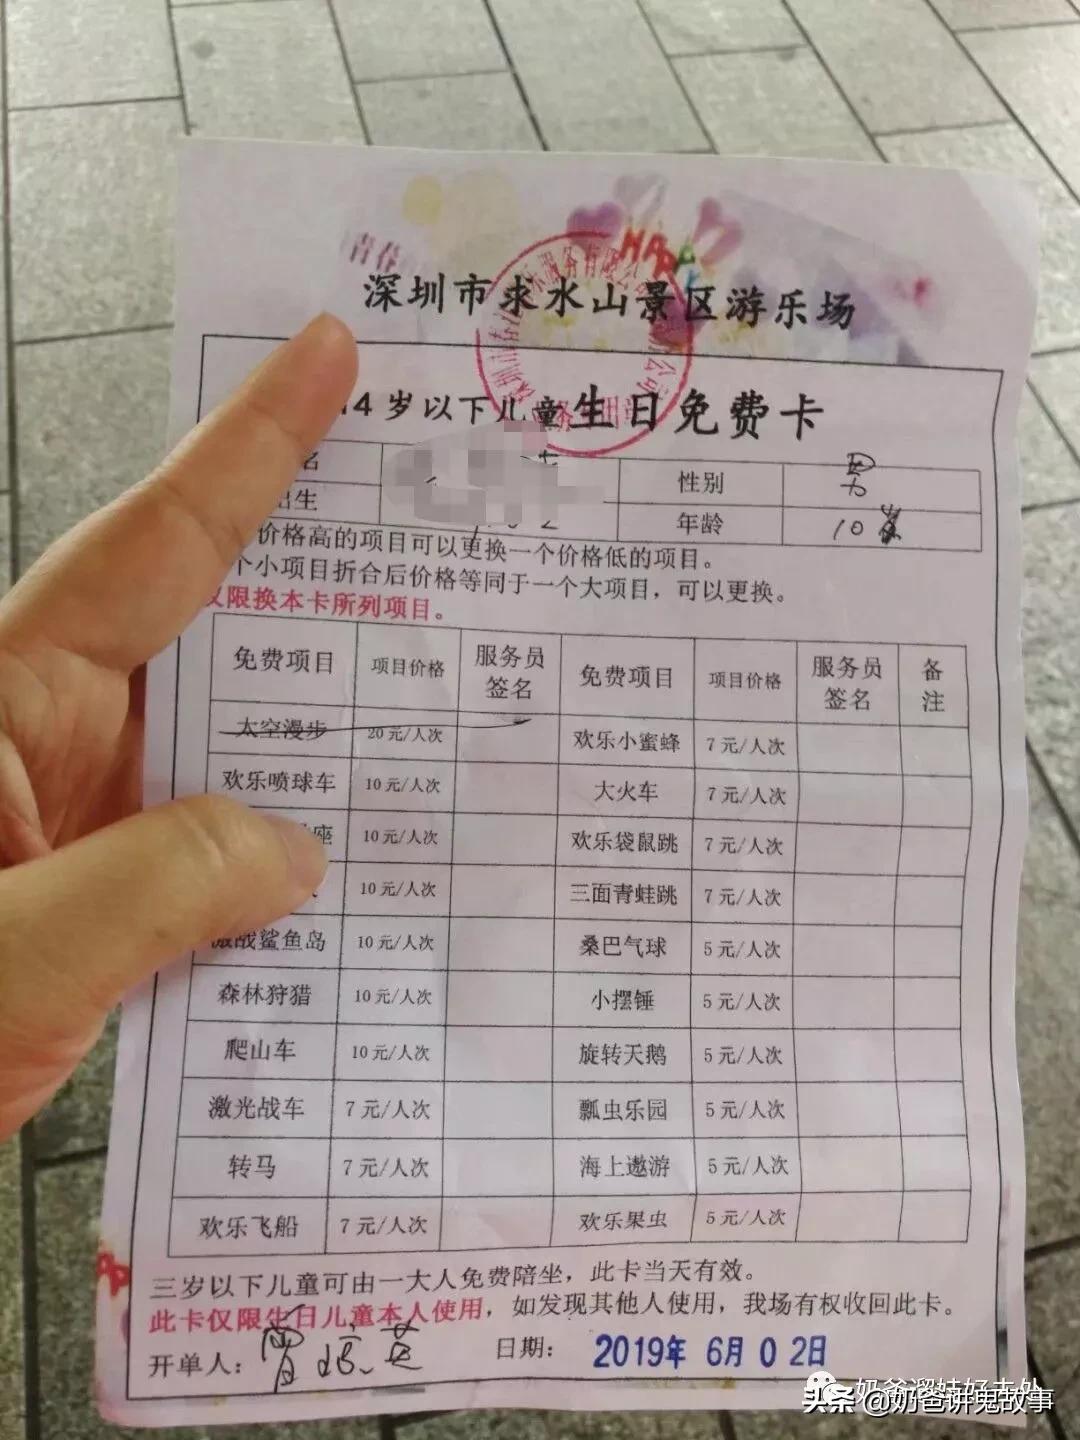 青春
HAPPY
深圳市求水山景区游乐场
14岁以下儿童生日免费卡
名 性别 男
出生 年龄 10岁
价格高的项目可以更换一个价格低的项目。
个小项目折合后价格等同于一个大项目，可以更换。
仅限换本卡所列项目。
免费项目 项目价格 服务员签名 免费项目 项目价格 服务员签名 备注
太空漫步 20元/人次 欢乐小蜜蜂 7元/人次
欢乐喷球车 10元/人次 大火车 7元/人次
座 10元/人次 欢乐袋鼠跳 7元/人次
10元/人次 三面青蛙跳 7元/人次
激战鲨鱼岛 10元/人次 桑巴气球 5元/人次
森林狩猎 10元/人次 小摆锤 5元/人次
爬山车 10元/人次 旋转天鹅 5元/人次
激光战车 7元/人次 瓢虫乐园 5元/人次
转马 7元/人次 海上遨游 5元/人次
欢乐飞船 7元/人次 欢乐果虫 5元/人次
三岁以下儿童可由一大人免费陪坐，此卡当天有效。
此卡仅限生日儿童本人使用，如发现其他人使用，我场有权收回此卡。
开单人： 日期： 2019年 6月 02日
奶爸遛娃好去处
头条 @奶爸讲鬼故事